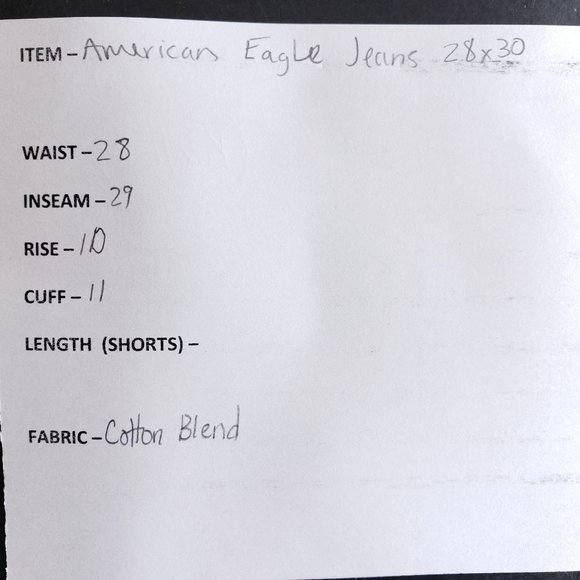 ITEM – American Eagle Jeans 28x30
WAIST – 28
INSEAM – 29
RISE – 10
CUFF – 11
LENGTH (SHORTS) –
FABRIC – Cotton Blend